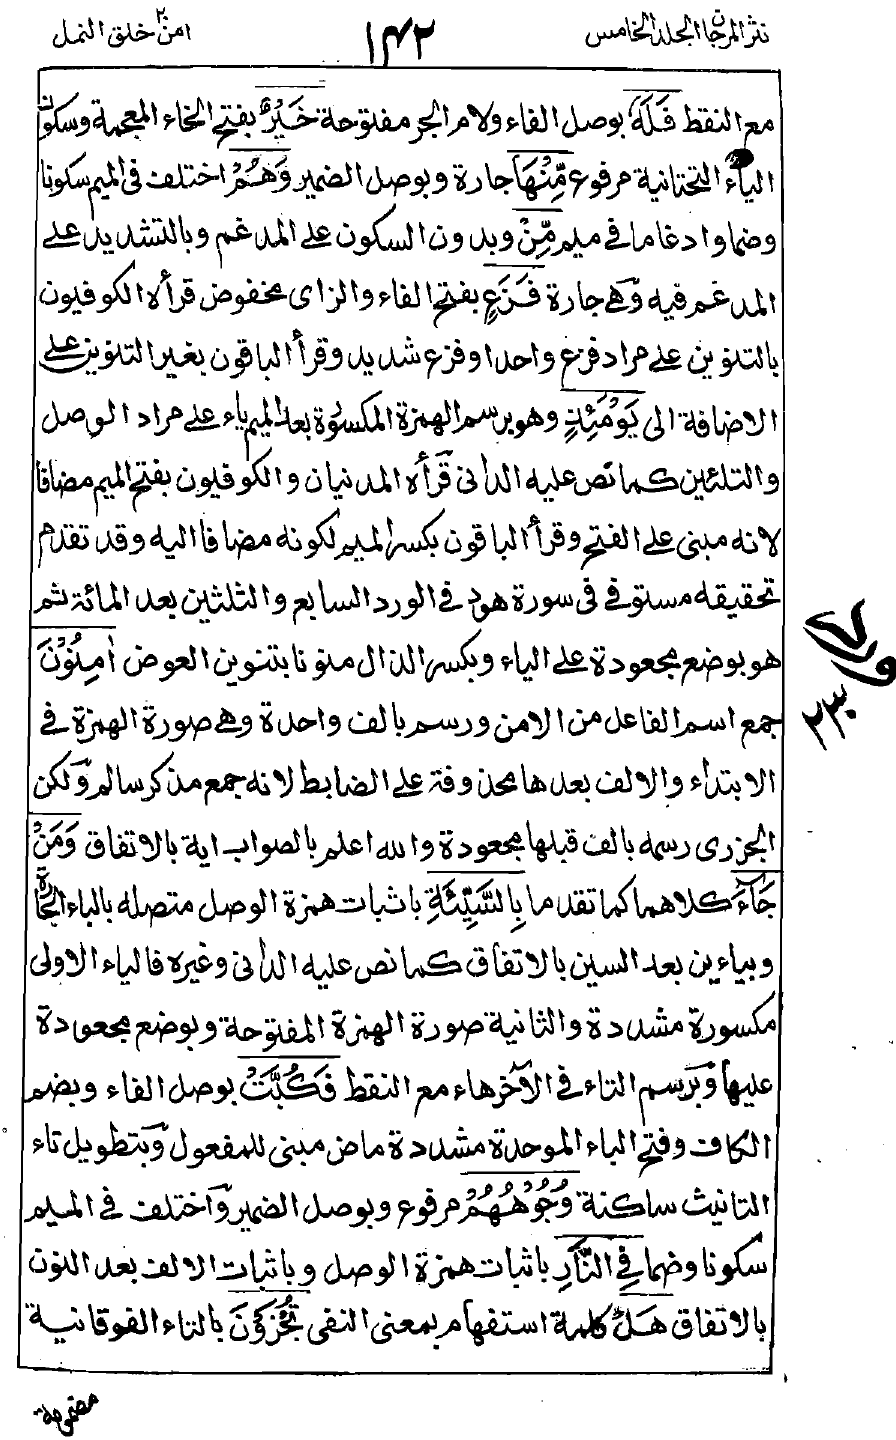 نثر المرجان الجلد الخامس
١٤٢
امن ٢٠ خلق النمل
مع النقط فَلَهٗ بوصل الفاء ولام الجر مفتوحة خَيْرٌ بفتح الخاء المعجمة وسكون
الياء التحتانية مرفوع مِّنْهَا جارة و بوصل الضمير وَهُمْ اختلف فى الميم سكونا
وضما وادغاما فى ميم مِّنْ وبدون السكون على المدغم وبالتشديد على
المدغم فيه وهى جارة فَزَعٍ بفتح الفاء والزاى مخفوض قرأه الكوفيون
بالتنوين على مراد فزع واحد او فزع شديد وقرأ الباقون بغير التنوين على
الاضافة الى يَوْمَئِذٍ وهو برسم الهمزة المكسورة بعد الميم ياء على مراد الوصل
والتلئين كما نص عليه الدانى قرأه المدنيان والكوفيون بفتح الميم مضافا
لانه مبنى على الفتح وقرأ الباقون بكسر الميم لكونه مضافا اليه وقد تقدم
تحقيقه مستوفى فى سورة هود فى الورد السابع والثلثين بعد المائة ثم
هو بوضع مجعودة على الياء وبكسر الذال منونا بتنوين العوض اٰمِنُوْنَ
جمع اسم الفاعل من الامن ورسم بالف واحدة وهى صورة الهمزة فى
الابتداء والالف بعدها محذوفة على الضابط لانه جمع مذكر سالم ولكن
الجزرى رسمه بالف قبلها مجعودة والله اعلم بالصواب اية بالاتفاق وَمَنْ
جَآءَ كلاهما كما تقدما بِالسَّيِّئَةِ باثبات همزة الوصل متصله بالباء الجارة
وبياءين بعد السين بالاتفاق كما نص عليه الدانى وغيره فالياء الاولى
مكسورة مشددة والثانية صورة الهمزة المفتوحة وبوضع مجعودة
عليها وبرسم التاء فى الآخر هاء مع النقط فَكُبَّتْ بوصل الفاء وبضم
الكاف وفتح الباء الموحدة مشددة ماض مبنى للمفعول وبتطويل تاء
التانيث ساكنة وُجُوْهُهُمْ مرفوع وبوصل الضمير واختلف فى الميم
سكونا وضما فِى النَّارِ باثبات همزة الوصل وباثبات الالف بعد النون
بالاتفاق هَلْ كلمة استفهام بمعنى النفى تُجْزَوْنَ بالتاء الفوقانية
مضمومة